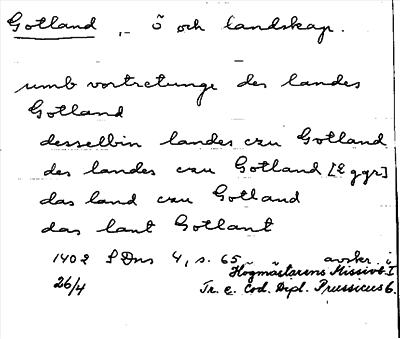 Gotland, ö och landskap.
umb vortretunge des landes
Gotland
desselbin landes czu Gotland
des landes czu Gotland [2 ggr]
das land czu Gotland
das lant Gotlant
1402 SDns 4, s. 65 avskr. i
Högmästarens Missivb. I
26/4 Tr. e. Cod. dipl. Prussicus 6.